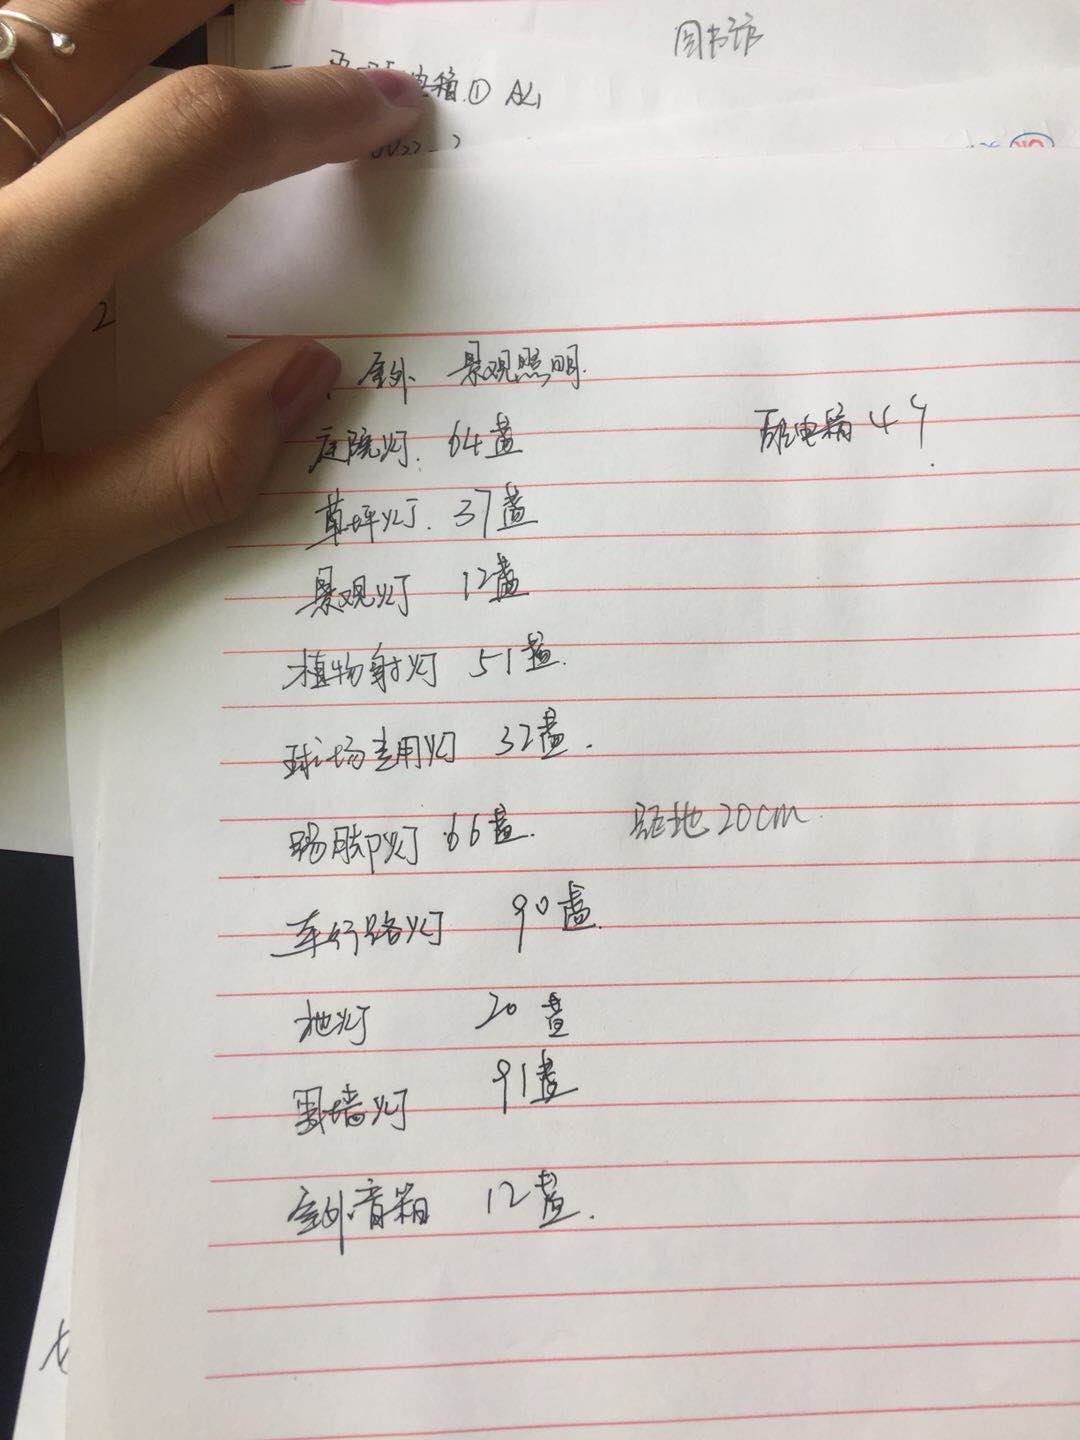 图书馆
电箱① AL1
室外 景观照明
庭院灯. 64盏
配电箱 4个
草坪灯. 37盏
景观灯 12盏
植物射灯 51盏.
球场专用灯 32盏.
踢脚灯 66盏. 距地20cm.
车行路灯 90盏.
地灯 20盏
围墙灯 91盏
室外音箱 12盏.